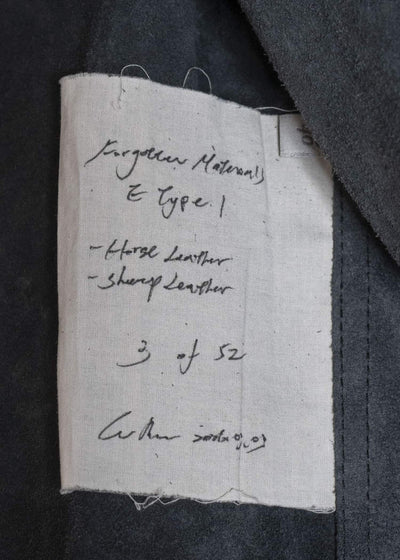 Forgotten Materials
E Type. 1
- Horse Leather
- Sheep Leather
3 of 52